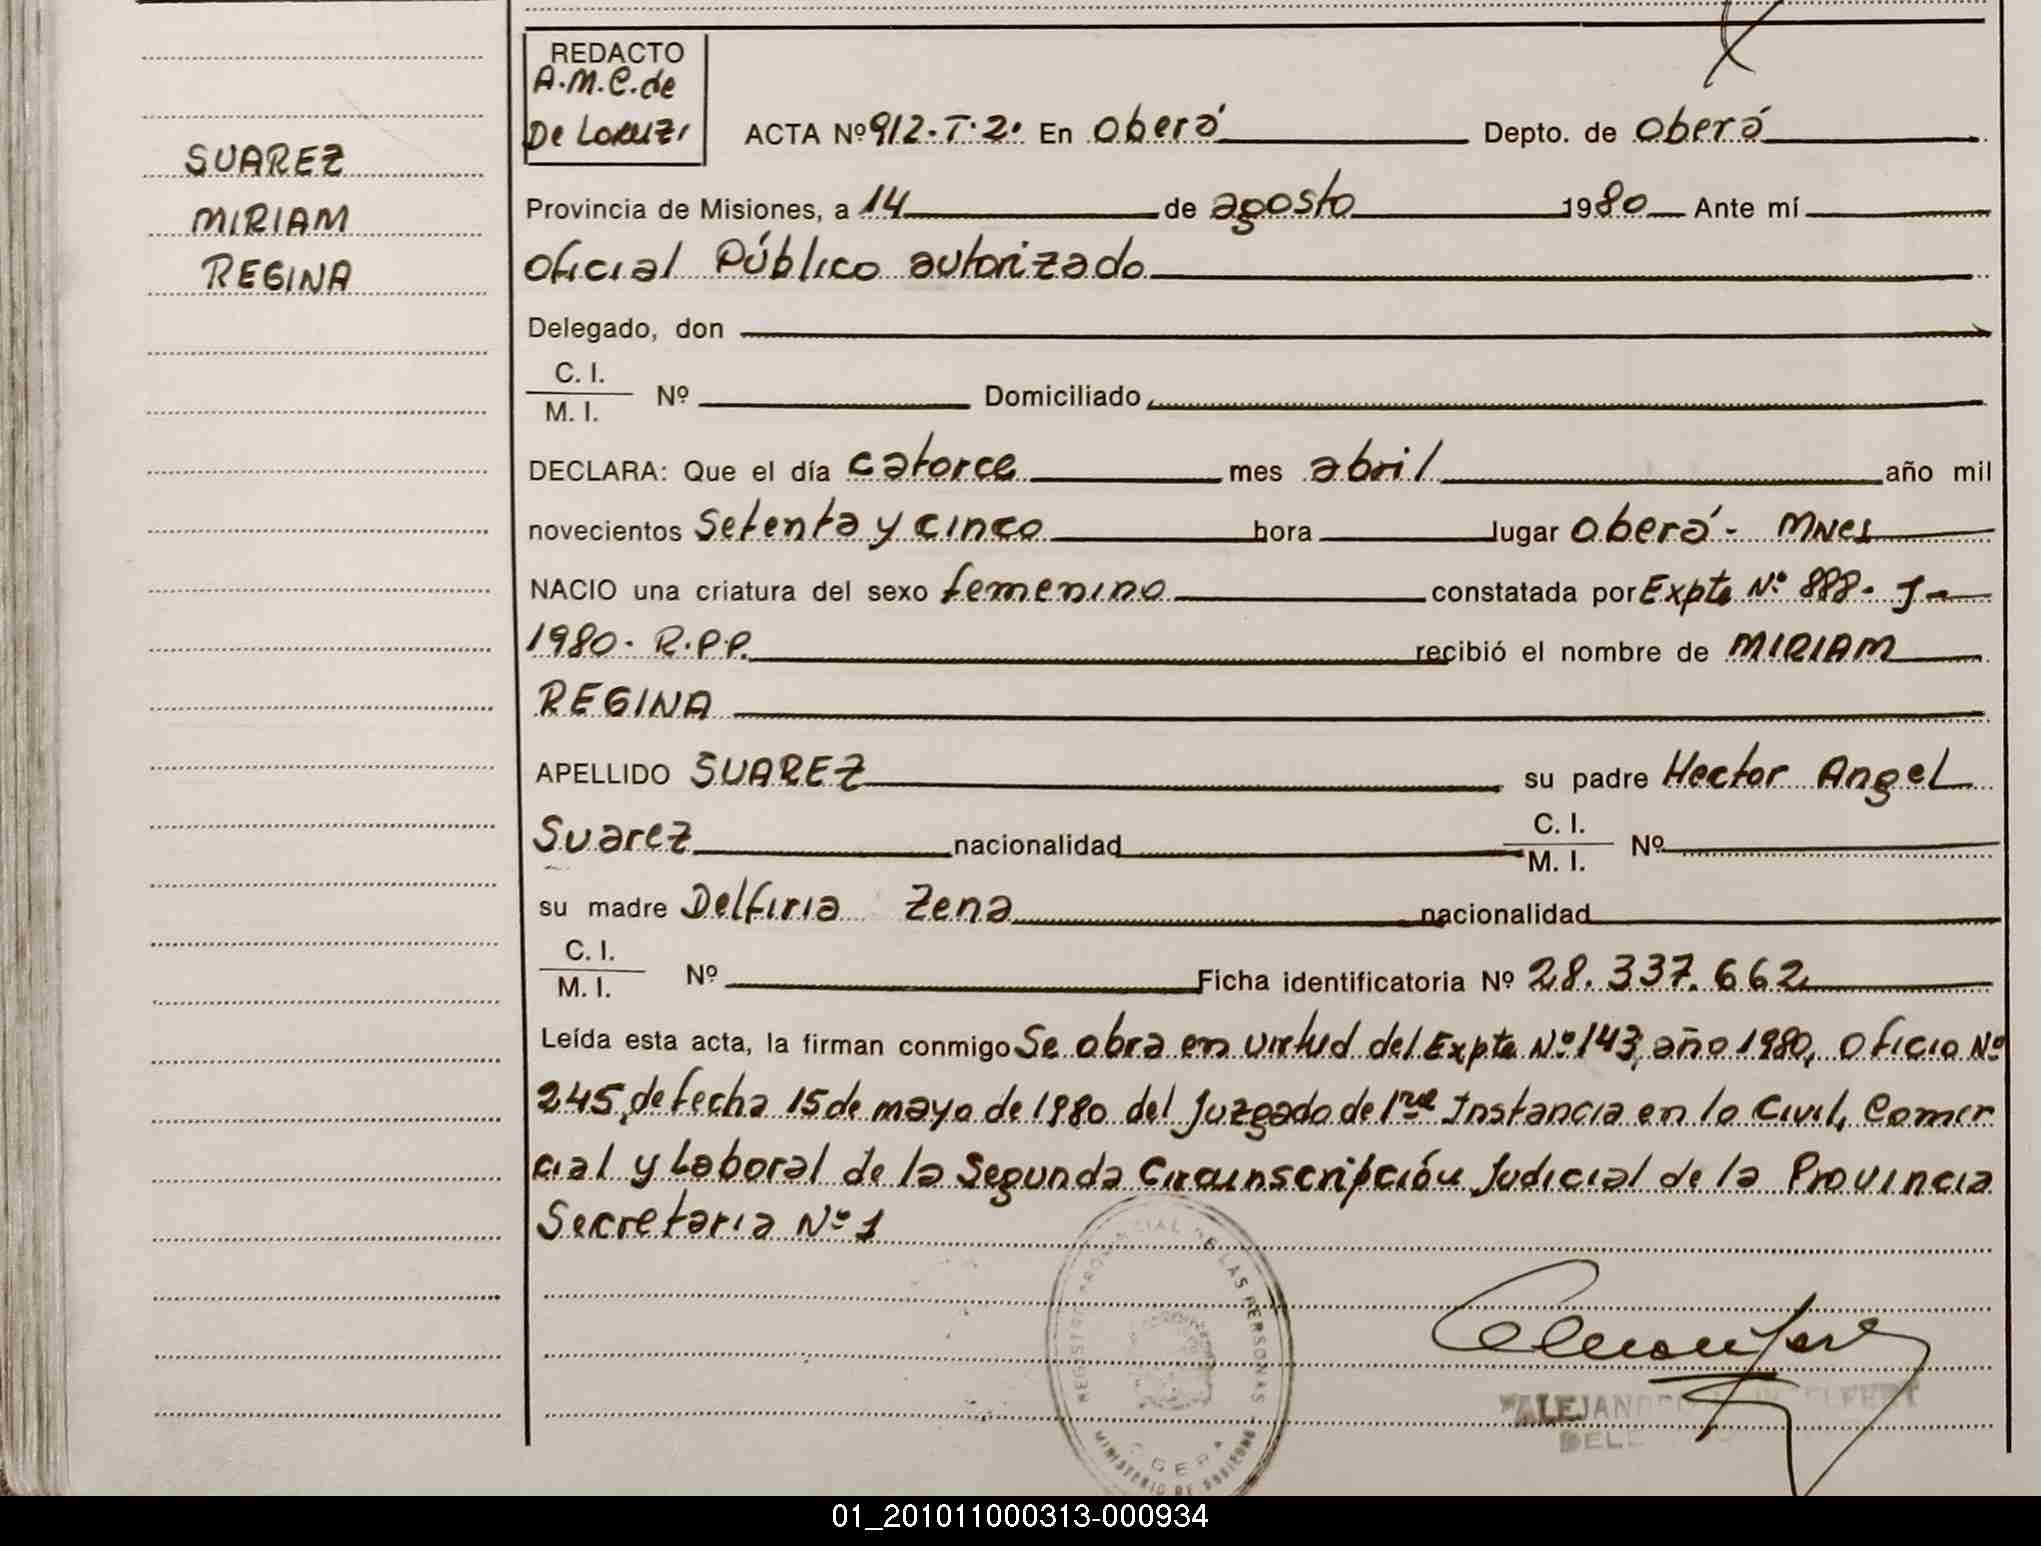 REDACTO
A.M.C. de
De Loruzi
SUAREZ
MIRIAM
REGINA
ACTA Nº 912-T.2. En Oberá Depto. de Oberá
Provincia de Misiones, a 14 de agosto 1980 Ante mí
Oficial Público autorizado
Delegado, don
C. I.
M. I. Nº Domiciliado
DECLARA: Que el día catorce mes abril año mil
novecientos Setenta y cinco hora lugar Oberá - Mnes
NACIO una criatura del sexo femenino constatada por Expte Nº 888- J-
1980- R.P.P. recibió el nombre de MIRIAM
REGINA
APELLIDO SUAREZ su padre Hector Angel
Suarez nacionalidad C. I.
M. I. Nº
su madre Delfiria Zena nacionalidad
C. I.
M. I. Nº Ficha identificatoria Nº 28.337.662
Leída esta acta, la firman conmigo Se obra en virtud del Expte Nº 143, año 1980, Oficio Nº
245, de fecha 15 de mayo de 1980 del Juzgado de 1ra Instancia en lo Civil, Comer
cial y Laboral de la Segunda Circunscripción Judicial de la Provincia
Secretaria Nº 1
REGISTRO PROVINCIAL DE LAS PERSONAS
MINISTERIO DE GOBIERNO
OBERA
01_201011000313-000934